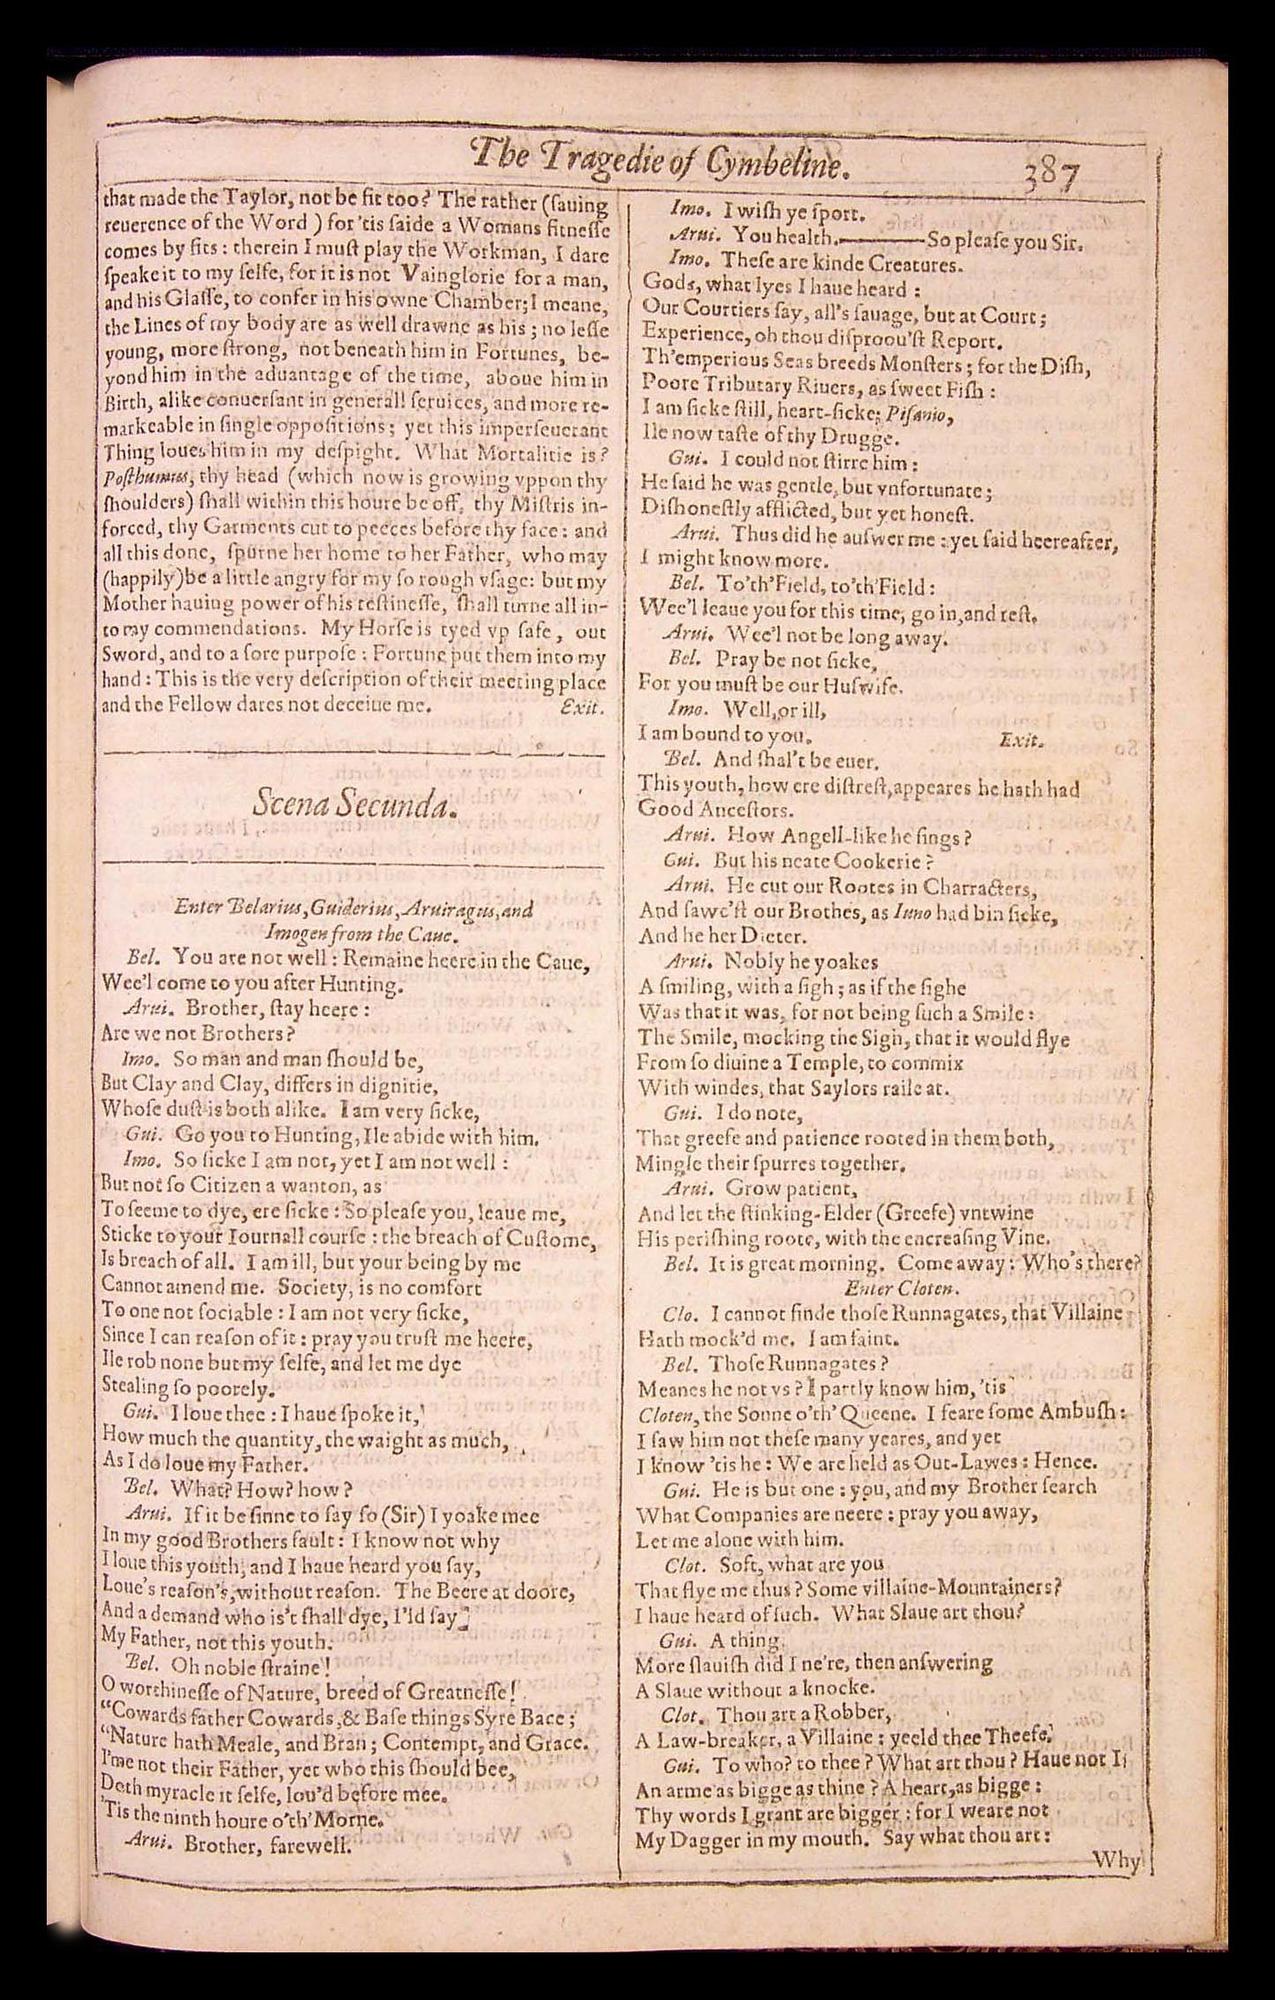 The Tragedie of Cymbeline. 387
that made the Taylor, not be fit too? The rather (ſauing
reuerence of the Word ) for 'tis ſaide a Womans fitneſſe
comes by fits : therein I muſt play the Workman, I dare
ſpeake it to my ſelfe, for it is not Vainglorie for a man,
and his Glaſſe, to confer in his owne Chamber; I meane,
the Lines of my body are as well drawne as his ; no leſſe
young, more ſtrong, not beneath him in Fortunes, be-
yond him in the aduantage of the time, aboue him in
Birth, alike conuerſant in generall ſeruices, and more re-
markeable in ſingle oppoſitions; yet this imperſeuerant
Thing loues him in my deſpight. What Mortalitie is?
Poſthumus, thy head (which now is growing vppon thy
ſhoulders) ſhall within this houre be off, thy Miſtris in-
forced, thy Garments cut to peeces before thy face : and
all this done, ſpurne her home to her Father, who may
(happily)be a little angry for my ſo rough vſage: but my
Mother hauing power of his teſtineſſe, ſhall turne all in-
to my commendations. My Horſe is tyed vp ſafe , out
Sword, and to a ſore purpoſe : Fortune put them into my
hand : This is the very deſcription of their meeting place
and the Fellow dares not deceiue me. Exit.
Scena Secunda.
Enter Belarius, Guiderius, Aruiragus, and
Imogen from the Caue.
Bel. You are not well : Remaine heere in the Caue,
Wee'l come to you after Hunting.
Arui. Brother, ſtay heere :
Are we not Brothers?
Imo. So man and man ſhould be,
But Clay and Clay, differs in dignitie,
Whoſe duſt is both alike. I am very ſicke,
Gui. Go you to Hunting, Ile abide with him.
Imo. So ſicke I am not, yet I am not well :
But not ſo Citizen a wanton, as
To ſeeme to dye, ere ſicke : So pleaſe you, leaue me,
Sticke to your Iournall courſe : the breach of Cuſtome,
Is breach of all. I am ill, but your being by me
Cannot amend me. Society, is no comfort
To one not ſociable : I am not very ſicke,
Since I can reaſon of it : pray you truſt me heere,
Ile rob none but my ſelfe, and let me dye
Stealing ſo poorely.
Gui. I loue thee : I haue ſpoke it,
How much the quantity, the waight as much,
As I do loue my Father.
Bel. What? How? how ?
Arui. If it be ſinne to ſay ſo (Sir) I yoake mee
In my good Brothers fault : I know not why
I loue this youth, and I haue heard you ſay,
Loue's reaſon's, without reaſon. The Beere at doore,
And a demand who is't ſhall dye, I'ld ſay
My Father, not this youth.
Bel. Oh noble ſtraine !
O worthineſſe of Nature, breed of Greatneſſe !
“Cowards father Cowards, & Baſe things Syre Bace ;
“Nature hath Meale, and Bran ; Contempt, and Grace.
I'me not their Father, yet who this ſhould bee,
Doth myracle it ſelfe, lou'd before mee.
'Tis the ninth houre o'th'Morne.
Arui. Brother, farewell.
Imo. I wiſh ye ſport.
Arui. You health.———So pleaſe you Sir.
Imo. Theſe are kinde Creatures.
Gods, what lyes I haue heard :
Our Courtiers ſay, all's ſauage, but at Court ;
Experience, oh thou diſproou'ſt Report.
Th'emperious Seas breeds Monſters ; for the Diſh,
Poore Tributary Riuers, as ſweet Fiſh :
I am ſicke ſtill, heart-ſicke; Piſanio,
Ile now taſte of thy Drugge.
Gui. I could not ſtirre him :
He ſaid he was gentle, but vnfortunate ;
Diſhoneſtly afflicted, but yet honeſt.
Arui. Thus did he auſwer me : yet ſaid heereafter,
I might know more.
Bel. To'th'Field, to'th'Field :
Wee'l leaue you for this time, go in, and reſt.
Arui. Wee'l not be long away.
Bel. Pray be not ſicke,
For you muſt be our Huſwife.
Imo. Well, or ill,
I am bound to you. Exit.
Bel. And ſhal't be euer.
This youth, how ere diſtreſt, appeares he hath had
Good Anceſtors.
Arui. How Angell-like he ſings ?
Gui. But his neate Cookerie ?
Arui. He cut our Rootes in Charracters,
And ſawc'ſt our Brothes, as Iuno had bin ſicke,
And he her Dieter.
Arui. Nobly he yoakes
A ſmiling, with a ſigh ; as if the ſighe
Was that it was, for not being ſuch a Smile :
The Smile, mocking the Sigh, that it would flye
From ſo diuine a Temple, to commix
With windes, that Saylors raile at.
Gui. I do note,
That greefe and patience rooted in them both,
Mingle their ſpurres together.
Arui. Grow patient,
And let the ſtinking-Elder (Greefe) vntwine
His periſhing roote, with the encreaſing Vine.
Bel. It is great morning. Come away : Who's there?
Enter Cloten.
Clo. I cannot finde thoſe Runnagates, that Villaine
Hath mock'd me. I am faint.
Bel. Thoſe Runnagates ?
Meanes he not vs ? I partly know him, 'tis
Cloten, the Sonne o'th' Queene. I feare ſome Ambuſh :
I ſaw him not theſe many yeares, and yet
I know 'tis he : We are held as Out-Lawes : Hence.
Gui. He is but one : you, and my Brother ſearch
What Companies are neere : pray you away,
Let me alone with him.
Clot. Soft, what are you
That flye me thus ? Some villaine-Mountainers ?
I haue heard of ſuch. What Slaue art thou?
Gui. A thing
More ſlauiſh did I ne're, then anſwering
A Slaue without a knocke.
Clot. Thou art a Robber,
A Law-breaker, a Villaine : yeeld thee Theefe.
Gui. To who? to thee ? What art thou ? Haue not I
An arme as bigge as thine ? A heart, as bigge :
Thy words I grant are bigger : for I weare not
My Dagger in my mouth. Say what thou art :
Why